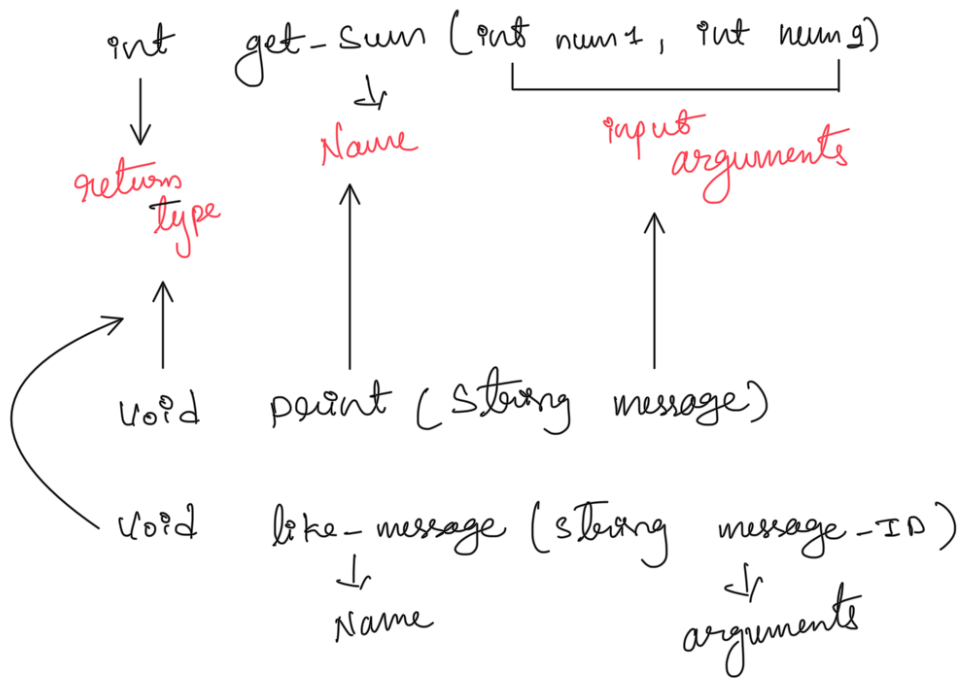 int get-sum (int num1, int num2)
Name
input
arguments
return
type
void print (string message)
void like-message (string message-ID)
Name
arguments